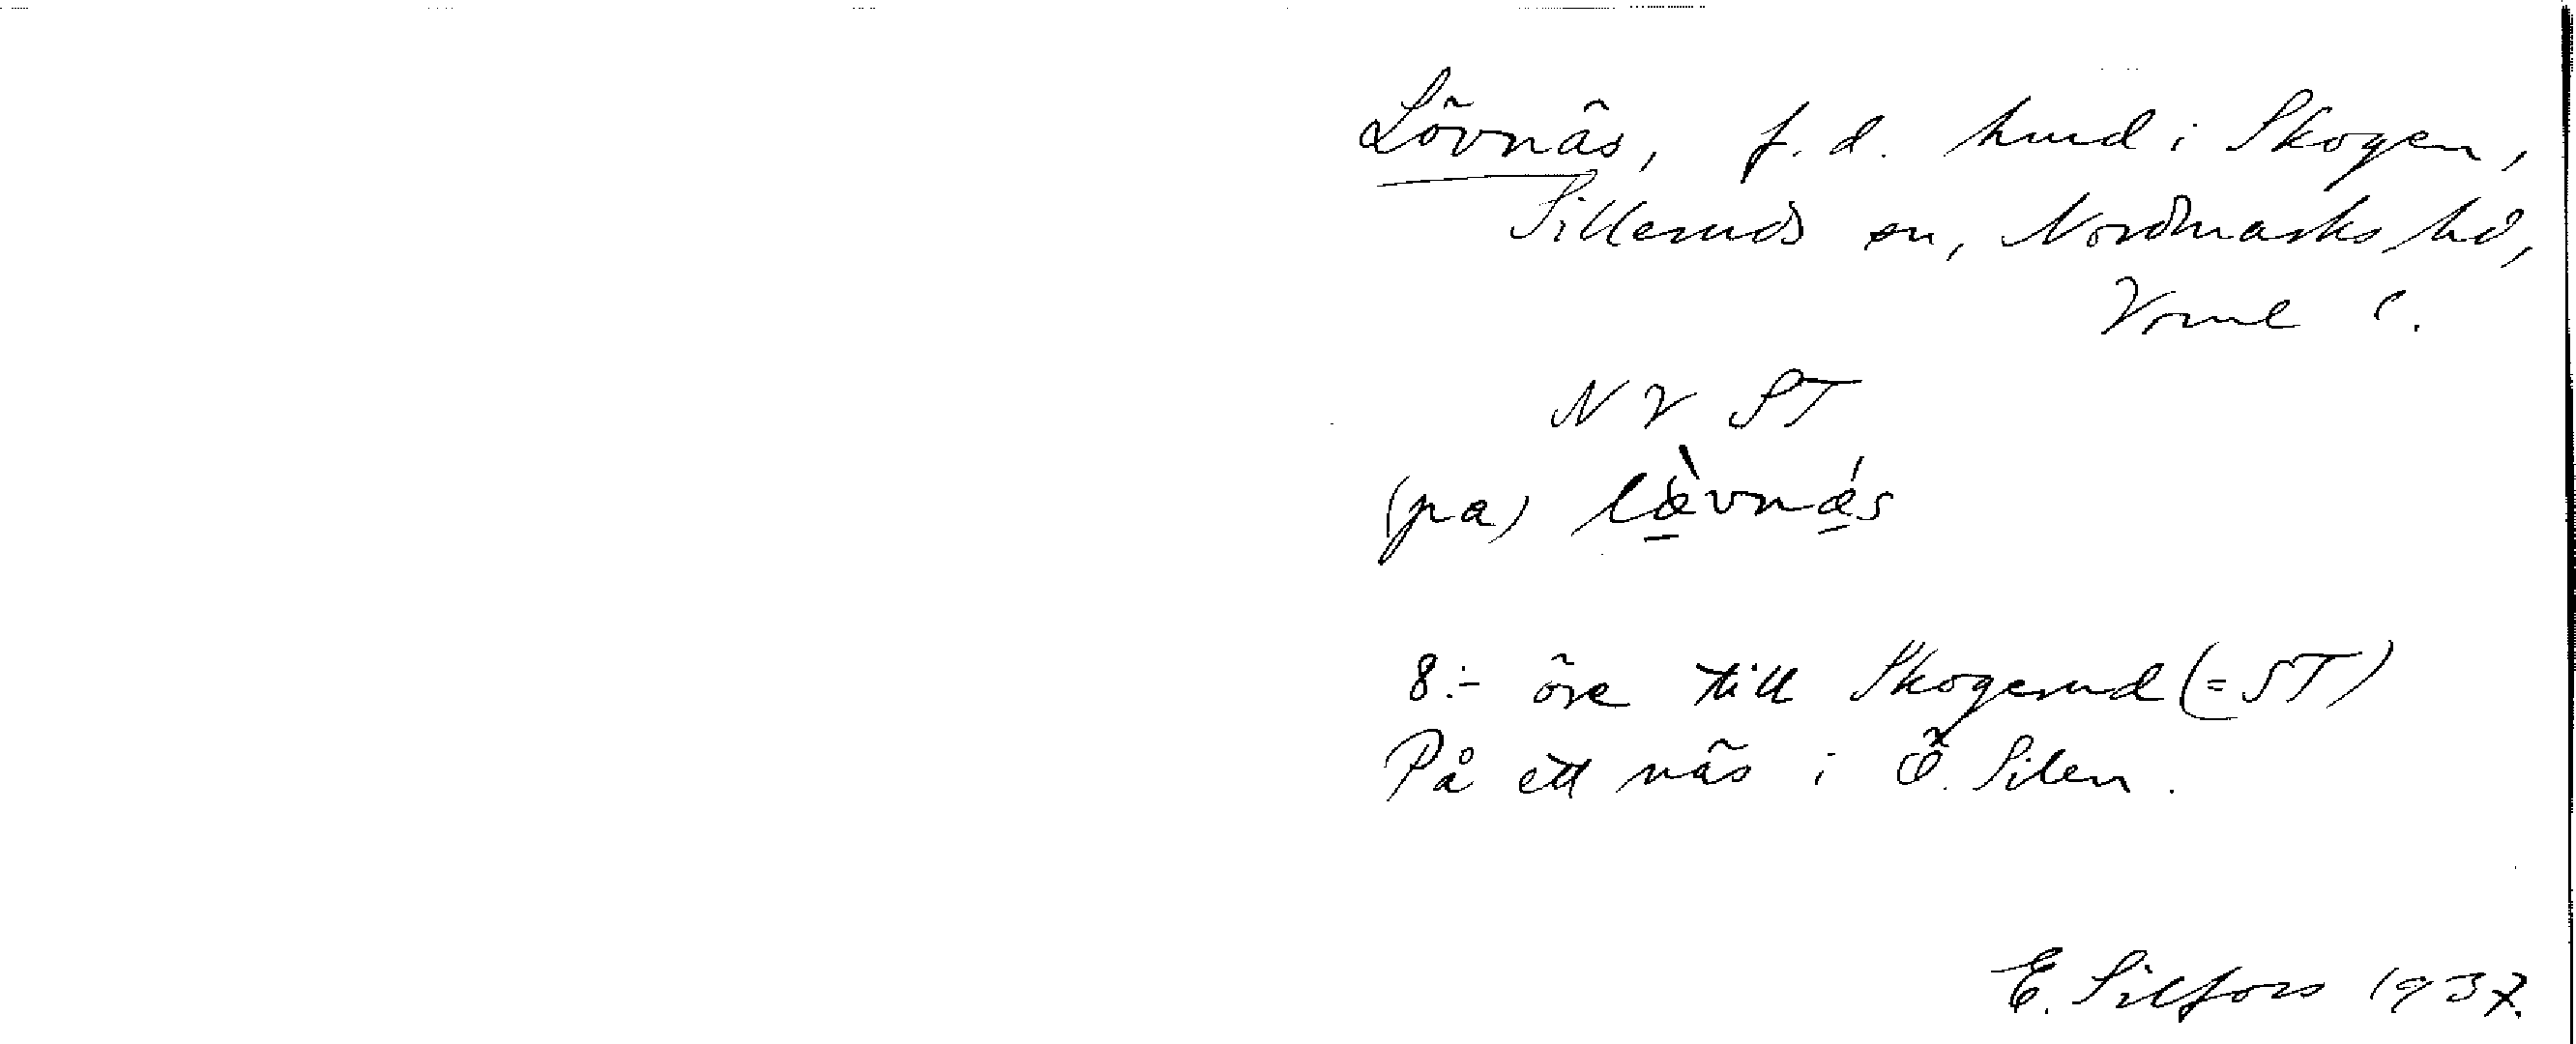 Lövnäs, f.d. hmd i Skogen,
Silleruds sn, Nordmarks hd,
Vrml l.
NV ST
(pa) lœ̀vnǽs
8:- öre till Skogerud (=ST)
På ett näs i Ö. Silen.
E. Silfors 1937.